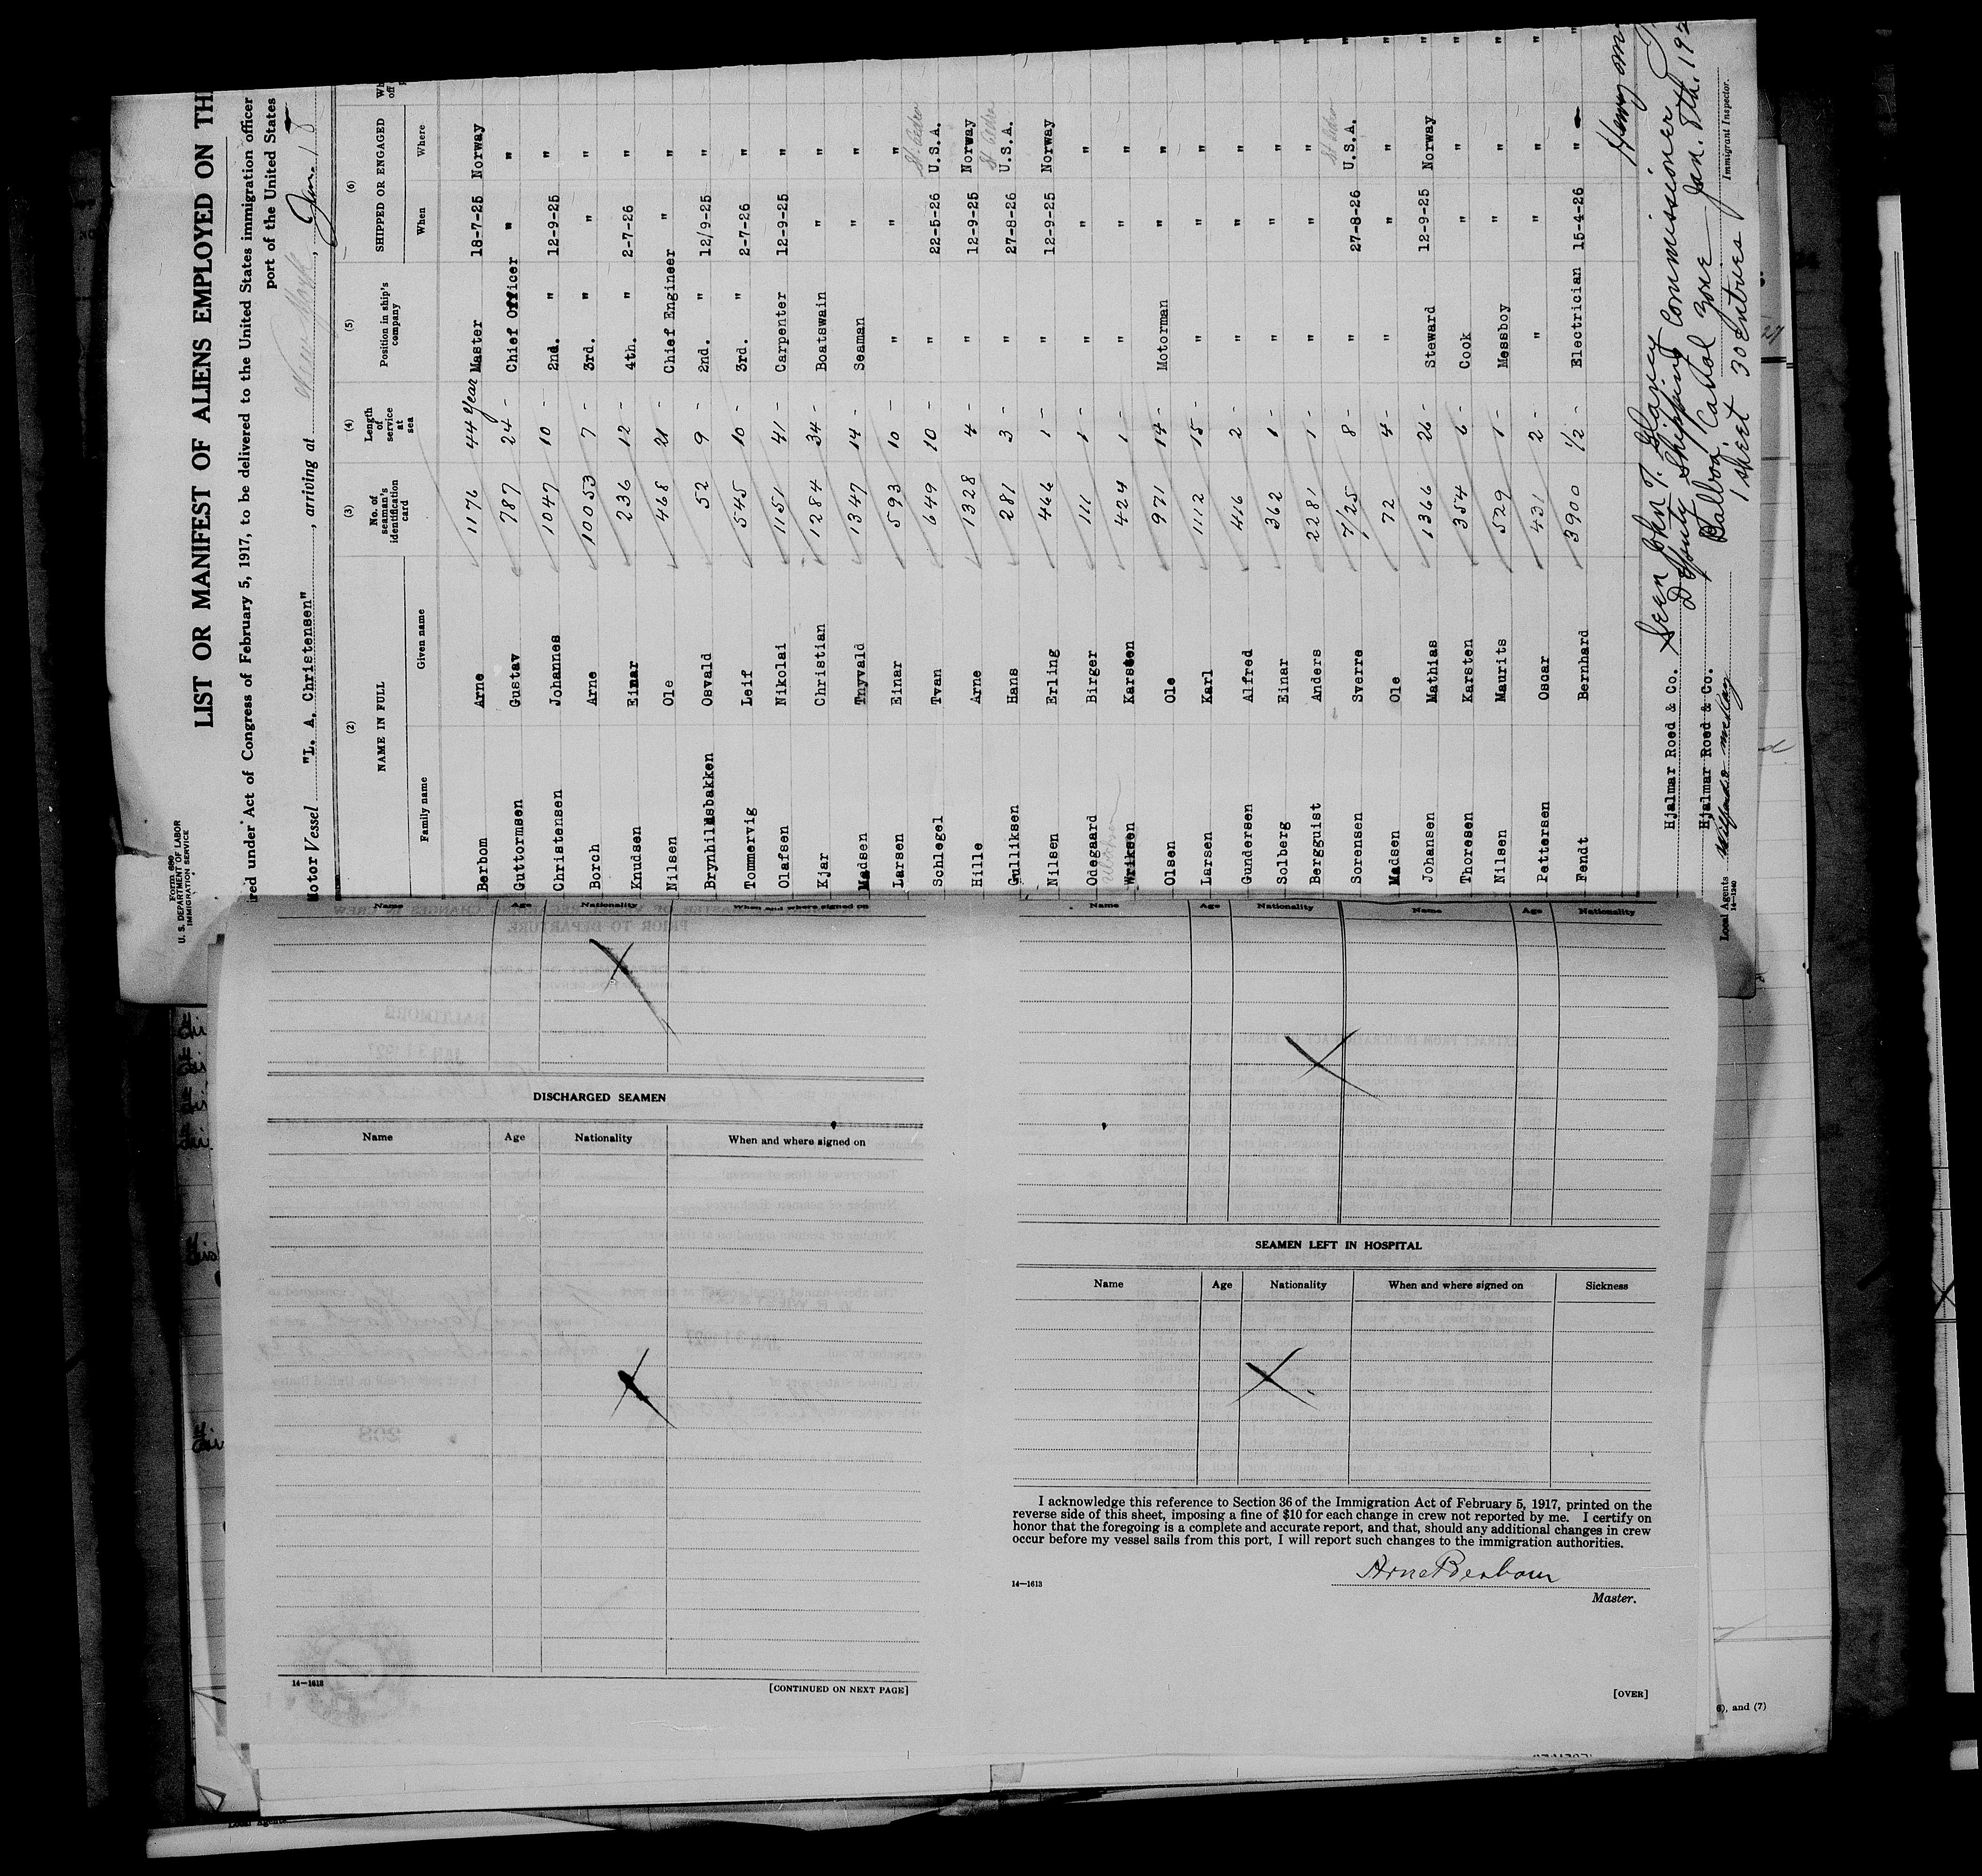 Form 680
U. S. DEPARTMENT OF LABOR
IMMIGRATION SERVICE
LIST OR MANIFEST OF ALIENS EMPLOYED ON TH
red under Act of Congress of February 5, 1917, to be delivered to the United States immigration officer
port of the United States
Motor Vessel "L. A. Christensen", arriving at New York, Jan. 18
(2) (3) (4) (5) (6)
NAME IN FULL No. of seaman's identification card Length of service at sea Position in ship's company SHIPPED OR ENGAGED Wh off
Family name Given name When Where
Berbom Arne 1176 44 Year Master 18-7-25 Norway
Guttormsen Gustav 787 24 - Chief Officer " "
Christensen Johannes 1047 10 - 2nd. " 12-9-25 "
Borch Arne 10053 7 - 3rd. " " "
Knudsen Einar 236 12 - 4th. " 2-7-26 "
Nilsen Ole 468 21 - Chief Engineer " "
Brynhildsbakken Osvald 52 9 - 2nd. " 12/9-25 "
Tommervig Leif 545 10 - 3rd. " 2-7-26 "
Olafsen Nikolai 1151 41 - Carpenter 12-9-25 "
Kjar Christian 1284 34 - Boatswain " "
Madsen Tnyvald 1347 14 - Seaman " "
Larsen Einar 593 10 - " " "
Schlegel Tvan 649 10 - " 22-5-26 U.S.A.
Hille Arne 1328 4 - " 12-9-25 Norway
Gulliksen Hans 281 3 - " 27-8-26 U.S.A.
Nilsen Erling 466 1 - " 12-9-25 Norway
Odegaard Birger 111 1 - " " "
Wriksen Karsten 424 1 - " " "
Olsen Ole 971 14 - Motorman " "
Larsen Karl 1112 15 - " " "
Gundersen Alfred 416 2 - " " "
Solberg Einar 362 1 - " " "
Bergguist Anders 2281 1 - " " "
Sorensen Sverre 7/25 8 - " 27-8-26 U.S.A.
Madsen Ole 72 4 - " " "
Johansen Mathias 1366 26 - Steward 12-9-25 Norway
Thoresen Karsten 354 6 - Cook " "
Nilsen Maurits 529 1 - Messboy " "
Pettersen Oscar 431 2 - " " "
Fendt Bernhard 3900 1/2 - Electrician 15-4-26 "
Hjalmar Roed & Co. Seen John T. Glancy Henry
Deputy Shipping Commissioner
Hjalmar Roed & Co. Balboa, Canal Zone Jan. 8th. 192
Local Agents 1 sheet 30 entries Immigrant Inspector.
14-1240
Name Age Nationality When and where signed on
DISCHARGED SEAMEN
Name Age Nationality When and where signed on
14—1613 [CONTINUED ON NEXT PAGE]
Name Age Nationality Name Age Nationality
SEAMEN LEFT IN HOSPITAL
Name Age Nationality When and where signed on Sickness
I acknowledge this reference to Section 36 of the Immigration Act of February 5, 1917, printed on the
reverse side of this sheet, imposing a fine of $10 for each change in crew not reported by me. I certify on
honor that the foregoing is a complete and accurate report, and that, should any additional changes in crew
occur before my vessel sails from this port, I will report such changes to the immigration authorities.
Arne Berbom
14—1613
Master.
[OVER]
6), and (7)